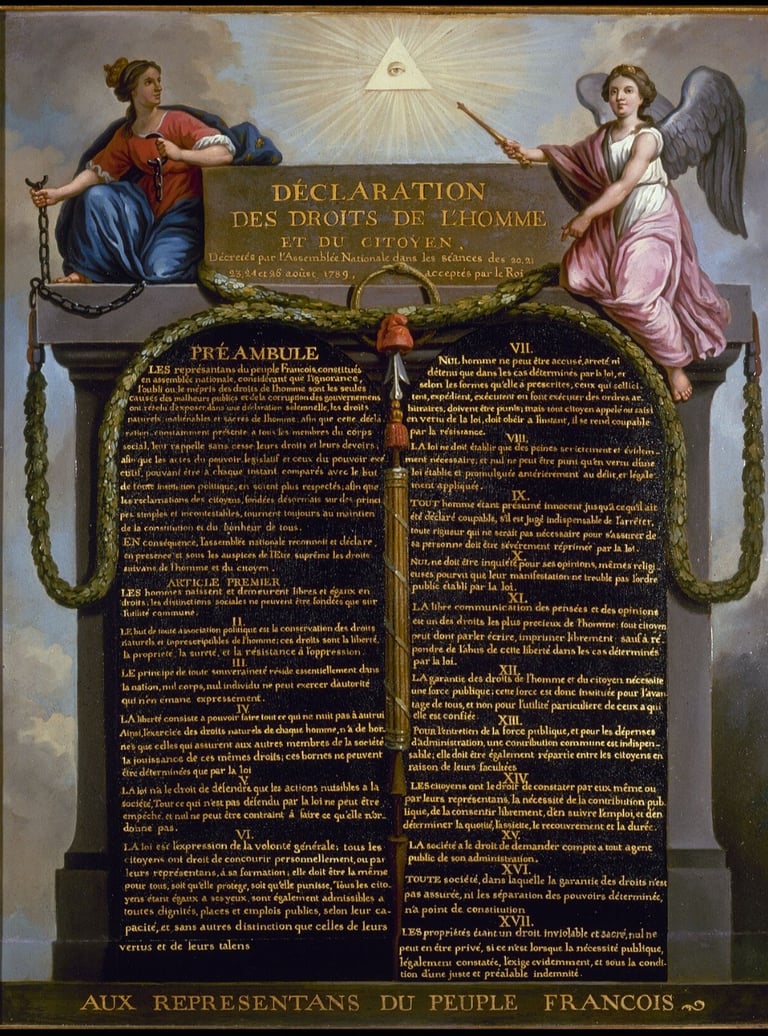 DÉCLARATION
DES DROITS DE L'HOMME
ET DU CITOYEN,
Décretés par l'Assemblée Nationale dans les séances des 20, 21
23, 24 et 26 août 1789, acceptés par le Roi
PRÉAMBULE
LES représantans du peuple Francois, constitués
en assemblée nationale, considérant que l'ignorance,
l'oubli ou le mépris des droits de l'homme sont les seules
causes des malheurs publics et de la corruption des gouvernemens
ont résolu d'exposer, dans une déclaration solemnelle, les droits
naturels, inaliénables et sacrés de l'homme; afin que cette décla
ration, constamment présente a tous les membres du corps
social, leur rappelle sans cesse leurs droits et leurs devoirs;
afin que les actes du pouvoir legislatif et ceux du pouvoir exé
cutif, pouvant être à chaque instant comparés avec le but
de toute institution politique, en soient plus respectés; afin que
les reclamations des citoyens, fondées désormais sur des princi
pes simples et incontestables, tournent toujours au maintien
de la constitution et du bonheur de tous.
EN conséquence, l'assemblée nationale reconnoit et déclare,
en presence et sous les auspices de l'Etre suprême les droits
suivans de l'homme et du citoyen.
ARTICLE PREMIER
LES hommes naissent et demeurent libres et égaux en
droits; les distinctions sociales ne peuvent être fondées que sur
l'utilité commune.
II.
LE but de toute association politique est la conservation des droits
naturels et inprescripables de l'homme; ces droits sont la liberté,
la propriété, la sureté, et la résistance à l'oppression.
III.
LE principe de toute souveraineté réside essentiellement dans
la nation, nul corps, nul individu ne peut exercer d'autorité
qui n'en émane expressement.
IV.
LA liberté consiste a pouvoir faire tout ce qui ne nuit pas à autrui
Ainsi, l'exercice des droits naturels de chaque homme, n'a de bor-
nes que celles qui assurent aux autres membres de la société
la jouissance de ces mêmes droits; ces bornes ne peuvent
être déterminées que par la loi
V.
LA loi n'a le droit de défendre que les actions nuisibles a la
société. Tout ce qui n'est pas défendu par la loi ne peut être
empêché, et nul ne peut être contraint à faire ce qu'elle n'or-
donne pas.
VI.
LA loi est l'expression de la volonté générale; tous les
citoyens ont droit de concourir personnellement, ou par
leurs représentans, à sa formation; elle doit être la même
pour tous, soit qu'elle protege, soit qu'elle punisse, Tous les cito-
yens étant égaux a ses yeux, sont également admissibles a
toutes dignités, places et emplois publics, selon leur ca-
pacité, et sans autres distinction que celles de leurs
vertus et de leurs talens
VII.
NUL homme ne peut être accusé, arreté ni
détenu que dans les cas déterminés par la loi, et
selon les formes qu'elle a prescrites, ceux qui sollici-
tent, expédient, exécutent ou font exécuter des ordres ar-
bitraires, doivent être punis; mais tout citoyen appelé ou saisi
en vertu de la loi, doit obéir a l'instant, il se rend coupable
par la résistance.
VIII.
LA loi ne doit établir que des peines strictement et évidem-
ment nécessaire, et nul ne peut être puni qu'en vertu d'une
loi établie et promulguée antérierement au délit, et légale-
ment appliquée.
IX.
TOUT homme étant présumé innocent jusqu'a ce qu'il ait
été déclaré coupable, s'il est jugé indispensable de l'arrêter,
toute rigueur qui ne serait pas nécessaire pour s'assurer de
sa personne doit être sévèrement réprimée par la loi.
X.
NUL ne doit être inquiété pour ses opinions, mêmes religi-
euses pourvu que leur manifestation ne trouble pas l'ordre
public établi par la loi.
XI.
LA libre communication des pensées et des opinions
est un des droits les plus precieux de l'homme; tout citoyen
peut dont parler écrire, imprimer librement: sauf a ré-
pondre de l'abus de cette liberté dans les cas déterminés
par la loi.
XII.
LA garantie des droits de l'homme et du citoyen nécessite
une force publique; cette force est donc instituée pour l'avan-
tage de tous, et non pour l'utilité particuliere de ceux a qui
elle est confiée.
XIII.
POUR l'entretien de la force publique, et pour les dépenses
d'administration, une contribution commune est indispen-
sable; elle doit être également répartie entre les citoyens en
raison de leurs facultées
XIV.
LES citoyens ont le droit de constater par eux même ou
par leurs représentans, la nécessité de la contribution pub-
lique, de la consentir librement, d'en suivre l'emploi, et d'en
déterminer la quotité, l'assiette, le recouvrement et la durée.
XV.
LA société a le droit de demander compte a tout agent
public de son administration.
XVI.
TOUTE société, dans laquelle la garantie des droits n'est
pas assurée, ni les séparation des pouvoirs déterminée,
n'a point de constitution
XVII.
LES propriétés étant un droit inviolable et sacré, nul ne
peut en être privé, si ce n'est lorsque la nécessité publique,
légalement constatée, l'exige evidemment, et sous la condi-
tion d'une juste et préalable indemnité.
AUX REPRESENTANS DU PEUPLE FRANCOIS